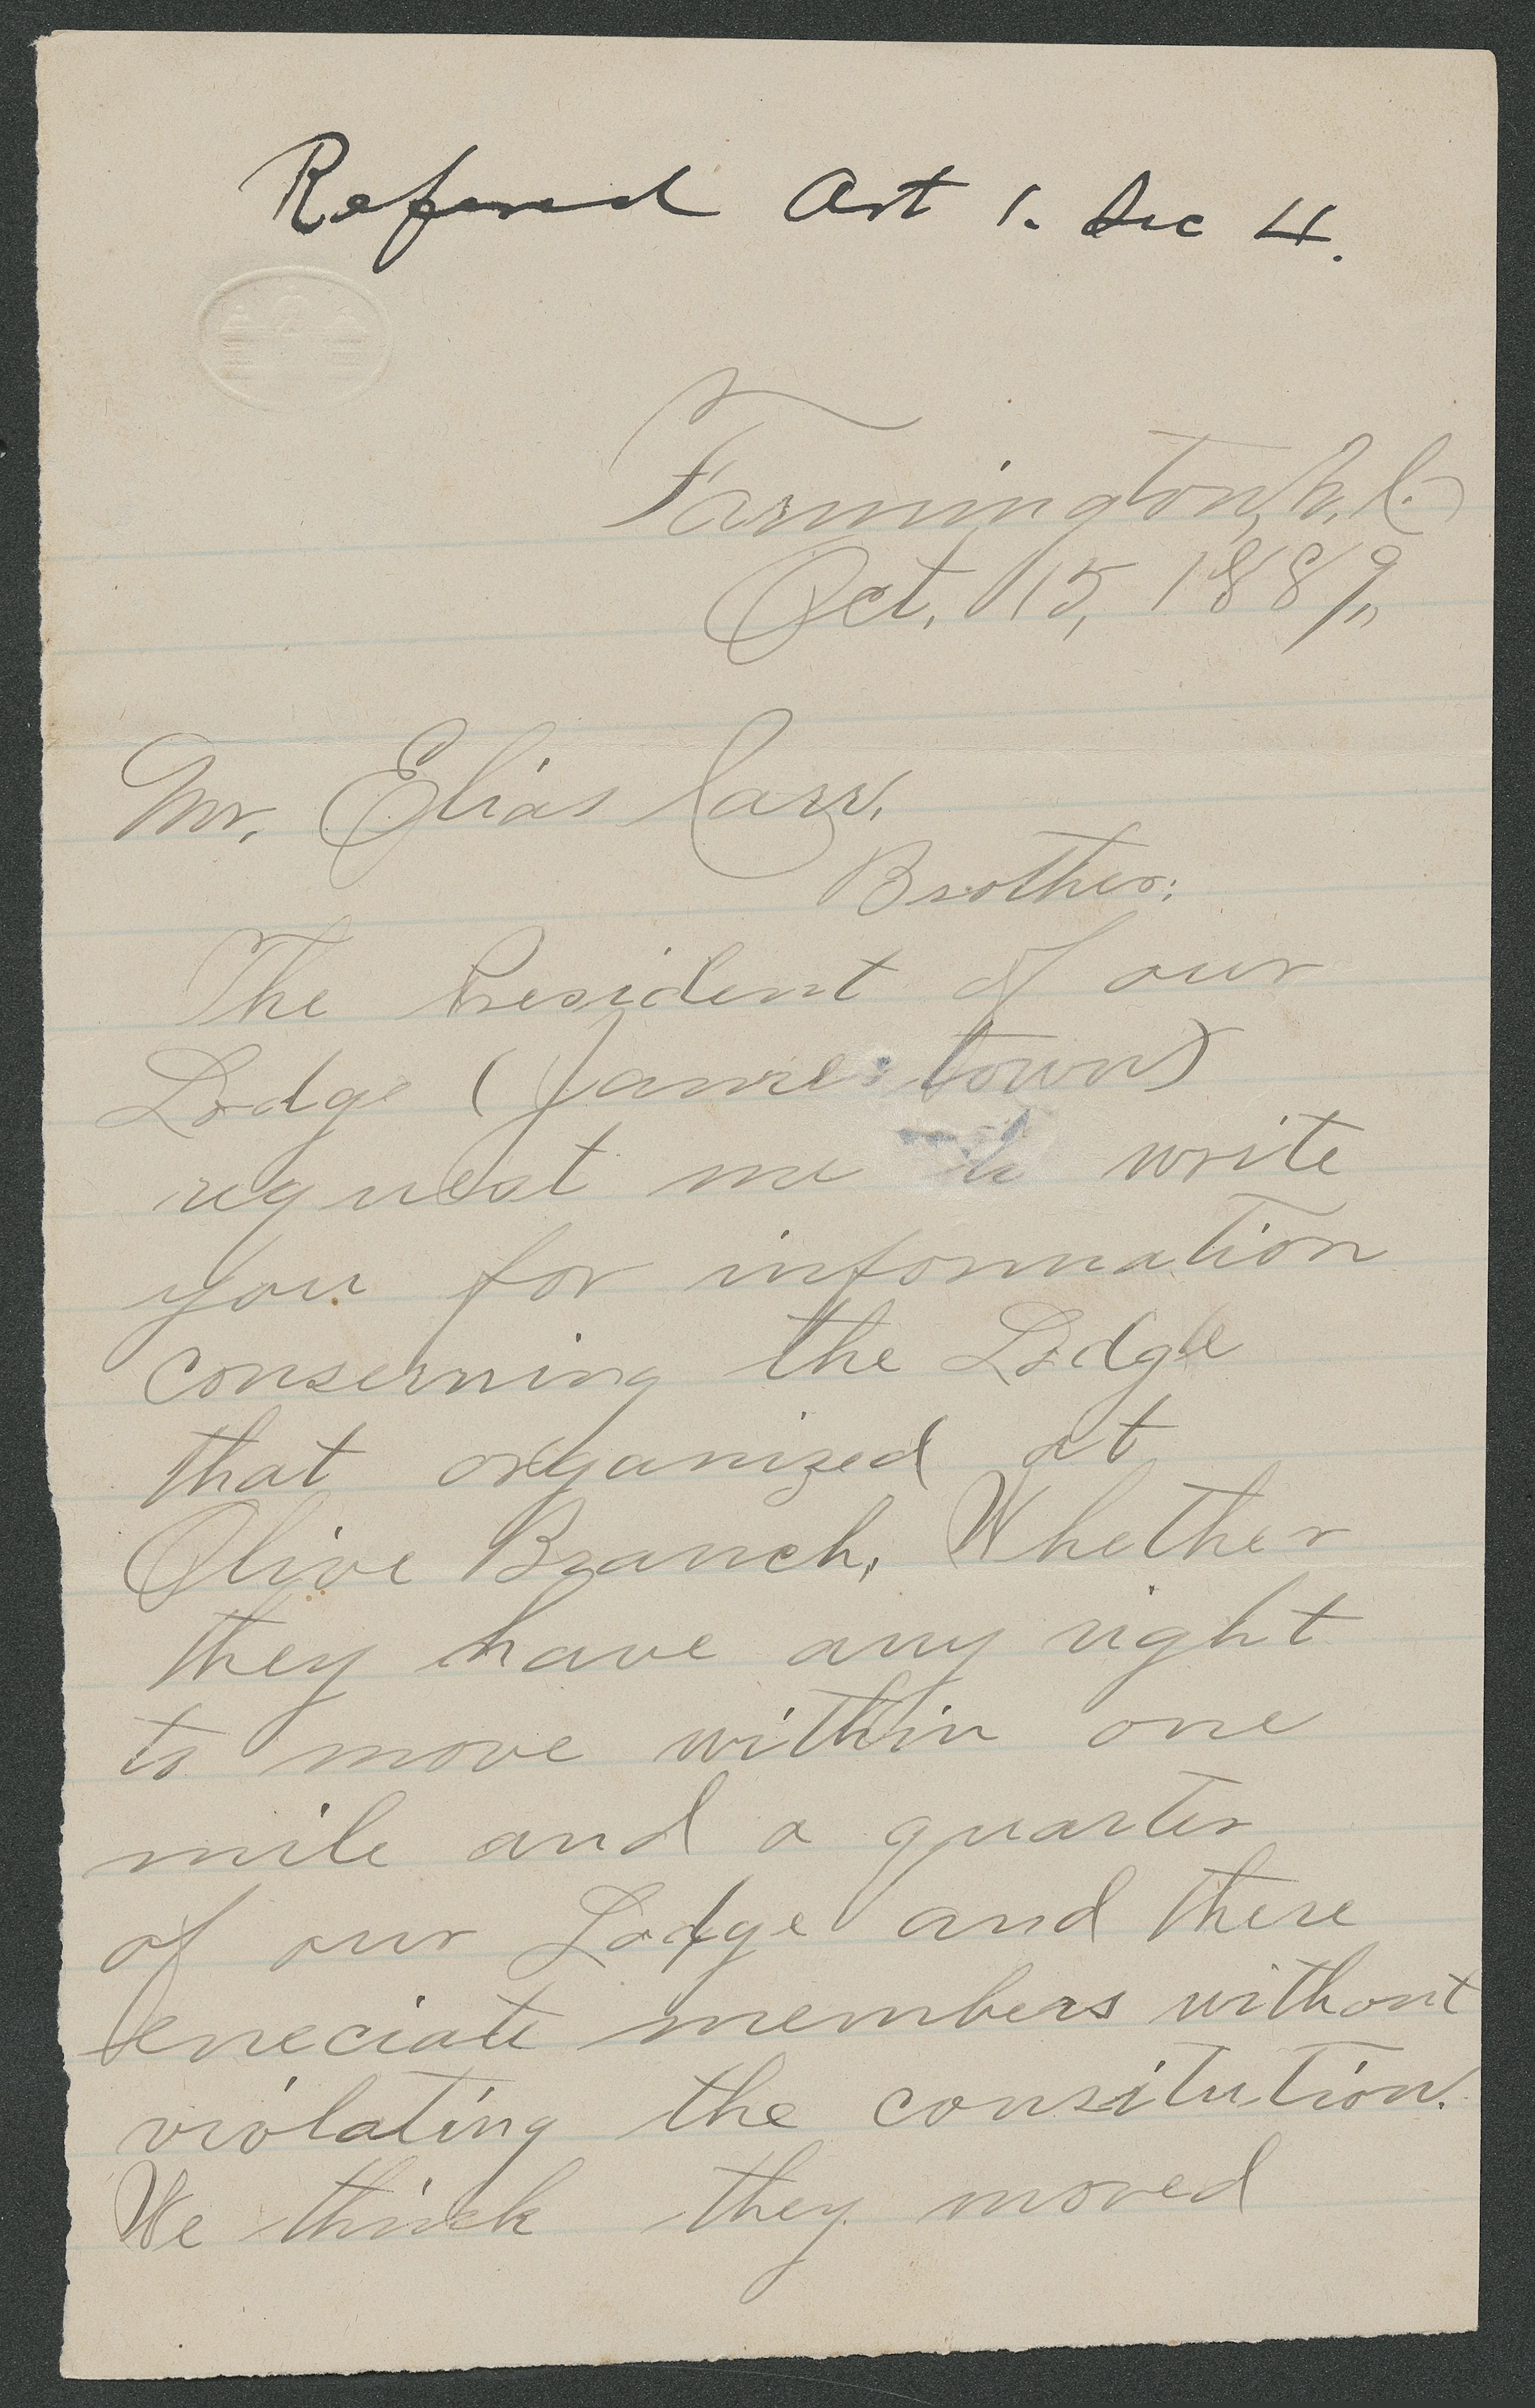 Refered Art 1. Sec 4.
Farmington, N.C.
Oct. 15, 1889,
Mr. Elias Carr.
Brother:
The President of our
Lodge (Jamestown)
request me to write
you for information
conserning the Lodge
that organized at
Olive Branch, Whether
they have any right
to move within one
mile and a quarter
of our Lodge and there
eneciate members without
violating the consitution.
We think they moved